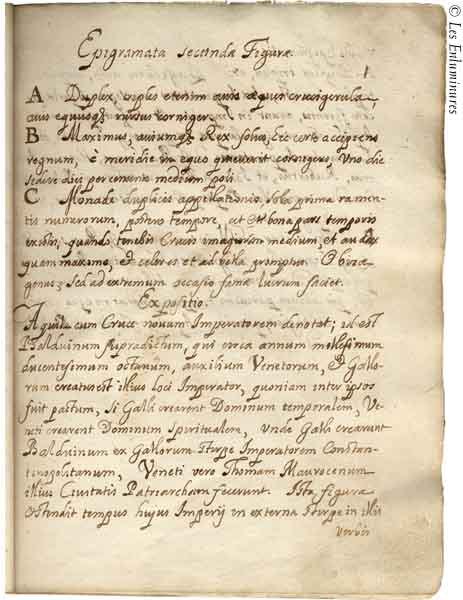 Epigramata secundæ Figuræ
A Duplex, triplex etenim avis æquæ crucigerula
avis equusq; rursus corniger.
B Maximus, aviumq; Rex solus, hic certe accipiens
regnum, è meridie in equo quievit cornigero. Uno die
sedere dici per medium poli.
C Monade duplicis appellatio. Sola prima
numerorum, postero tempore, et bona pars temporis
existis, quando tenebis Crucis imaginem medium, et audax
quam maxime, et celer es et ad bella promptus. Obscæ
genus; Sed ad extremum occasio
Expositio.
Aquila cum Cruce novum Imperatorem denotat; id est
Balduinum supradictum, qui circa annum millesimum
ducentesimum octavum, auxilium Venetorum, et Gallo
rum creatus est illius loci Imperator, quoniam inter ipsos
fuit pactum, si Galli crearent Dominum temporalem, Ve
neti crearent Dominum Spiritualem, unde Galli crearunt
Balduinum ex Gallorum stirpe Imperatorem Constan-
tinopolitanum, Veneti vero Thomam Maurocenum
illius Civitatis Patriarcham fecerunt. Ista figura
ostendit tempus hujus Imperij in externa stirpe in illis
verbis
© Les Enluminures